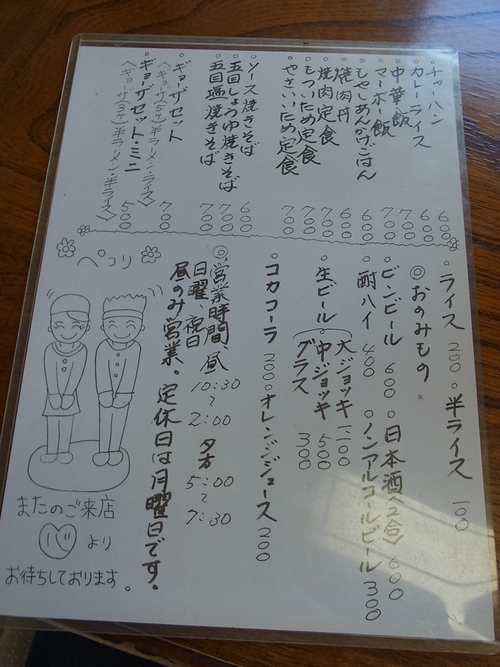 ・チャーハン 600
・カレーライス 600
・中華飯 700
・マーボー飯 700
・もやしあんかけごはん 600
・焼肉丼 600
・焼肉定食 700
・もついため定食 700
・やさいいため定食 700
・ソース焼きそば 600
・五目しょうゆ焼きそば 700
・五目塩焼きそば 700
・ギョーザセット 700
〈ギョーザ(5ヶ)半ラーメン・ライス〉
・ギョーザセット・ミニ 500
〈ギョーザ(3ヶ)半ラーメン・半ライス〉
・ライス 200 ・半ライス 100
◎おのみもの
・ビンビール 600 ・日本酒〈2合〉 600
・酎ハイ 400 ・ノンアルコールビール 300
・生ビール
大ジョッキ 1100
中ジョッキ 500
グラス 300
・コカコーラ 200 ・オレンジジュース 200
◎営業時間、昼 10:30〜2:00 夕方 5:00〜7:30
日曜、祝日
昼のみ営業。定休日は月曜日です。
ペコリ
またのご来店
心より
お待ちしております。